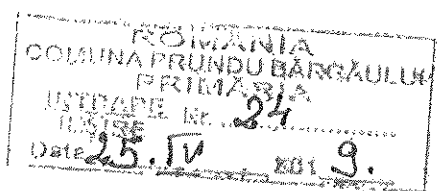 ROMÂNIA
COMUNA PRUNDU BÂRGĂULUI
PRIMĂRIA
INTRARE Nr. 24
IEȘIRE
Data 25. IV 201 9.